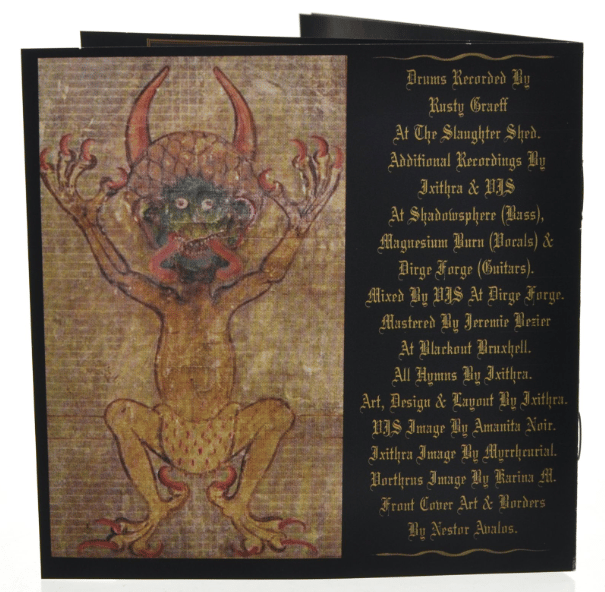 Drums Recorded By
Rusty Graeff
At The Slaughter Shed.
Additional Recordings By
Ixithra & VJS
At Shadowsphere (Bass),
Magnesium Burn (Vocals) &
Dirge Forge (Guitars).
Mixed By VJS At Dirge Forge.
Mastered By Jeremie Bezier
At Blackout Bruxhell.
All Hymns By Ixithra.
Art, Design & Layout By Ixithra.
VJS Image By Amanita Noir.
Ixithra Image By Myrrheurial.
Vorthrus Image By Karina M.
Front Cover Art & Borders
By Nestor Avalos.